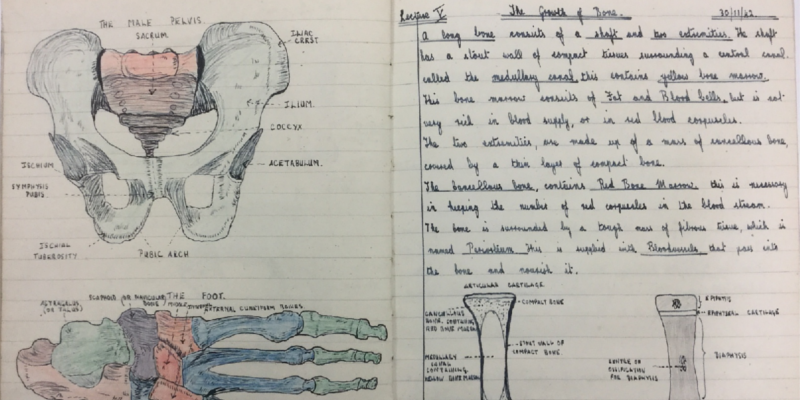 THE MALE PELVIS.
SACRUM.
ILIAC CREST
ILIUM.
COCCYX
ACETABULUM.
ISCHIUM.
SYMPHYSIS PUBIS.
ISCHIAL TUBEROSITY
PUBIC ARCH
THE FOOT.
ASTRAGALUS, (OR TALUS)
SCAPHOID (OR NAVICULAR) BONE
MIDDLE
EXTERNAL CUNEIFORM BONES.
Lecture V The Growth of Bone. 30/11/42
A long bone consists of a shaft and two extremities. The shaft
has a stout wall of compact tissues surrounding a central canal.
called the medullary canal, this contains yellow bone marrow.
This bone marrow consists of Fat and Blood cells, but is not
very rich in blood supply, or in red blood corpuscles.
The two extremities, are made up of a mass of cancellous bone,
covered by a thin layer of compact bone.
The cancellous bone, contains Red Bone Marrow, this is necessary
in keeping the number of red corpuscles in the blood stream.
The bone is surrounded by a tough mass of fibrous tissue, which is
named Periosteum This is supplied with Bloodvessels that pass into
the bone and nourish it.
ARTICULAR CARTILAGE.
COMPACT BONE
CANCELLOUS BONE, CONTAINING RED BONE MARROW
STOUT WALL OF COMPACT BONE
MEDULLARY CANAL CONTAINING YELLOW BONE MARROW
EPIPHYSIS
CARTILAGE
DIAPHYSIS
CENTRE OF OSSIFICATION FOR DIAPHYSIS